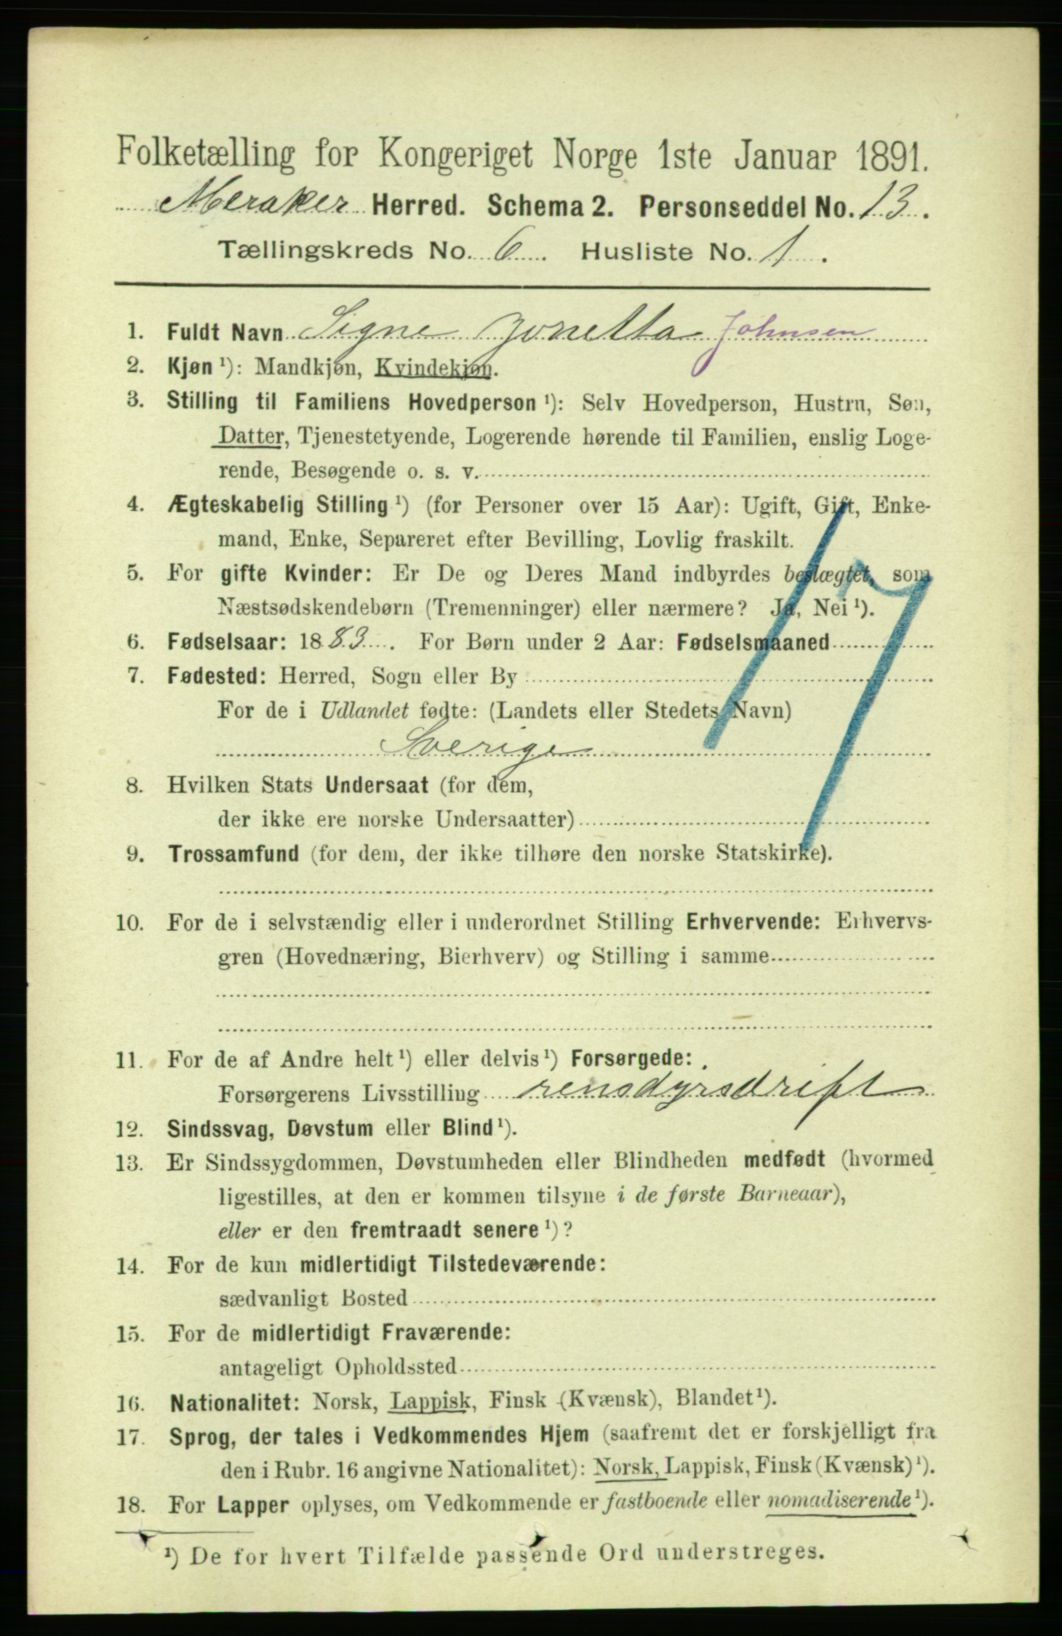 Folketælling for Kongeriget Norge 1ste Januar 1891.
Meraker Herred. Schema 2. Personseddel No. 13.
Tællingskreds No. 6. Husliste No. 1.
1. Fuldt Navn Signe Jonetta Johnsen
2. Kjøn ¹): Mandkjøn, Kvindekjøn.
3. Stilling til Familiens Hovedperson ¹): Selv Hovedperson, Hustru, Søn,
Datter, Tjenestetyende, Logerende hørende til Familien, enslig Loge-
rende, Besøgende o. s. v.
4. Ægteskabelig Stilling ¹) (for Personer over 15 Aar): Ugift, Gift, Enke-
mand, Enke, Separeret efter Bevilling, Lovlig fraskilt.
5. For gifte Kvinder: Er De og Deres Mand indbyrdes beslægtet, som
Næstsødskendebørn (Tremenninger) eller nærmere? Ja, Nei ¹).
6. Fødselsaar: 1883. For Børn under 2 Aar: Fødselsmaaned
7. Fødested: Herred, Sogn eller By
For de i Udlandet fødte: (Landets eller Stedets Navn)
Sverige
8. Hvilken Stats Undersaat (for dem,
der ikke ere norske Undersaatter)
9. Trossamfund (for dem, der ikke tilhøre den norske Statskirke).
10. For de i selvstændig eller i underordnet Stilling Erhvervende: Erhvervs-
gren (Hovednæring, Bierhverv) og Stilling i samme
11. For de af Andre helt ¹) eller delvis ¹) Forsørgede:
Forsørgerens Livsstilling rensdyrsdrift
12. Sindssvag, Døvstum eller Blind ¹).
13. Er Sindssygdommen, Døvstumheden eller Blindheden medfødt (hvormed
ligestilles, at den er kommen tilsyne i de første Barneaar),
eller er den fremtraadt senere ¹)?
14. For de kun midlertidigt Tilstedeværende:
sædvanligt Bosted
15. For de midlertidigt Fraværende:
antageligt Opholdssted
16. Nationalitet: Norsk, Lappisk, Finsk (Kvænsk), Blandet ¹).
17. Sprog, der tales i Vedkommendes Hjem (saafremt det er forskjelligt fra
den i Rubr. 16 angivne Nationalitet): Norsk, Lappisk, Finsk (Kvænsk) ¹).
18. For Lapper oplyses, om Vedkommende er fastboende eller nomadiserende ¹).
¹) De for hvert Tilfælde passende Ord understreges.